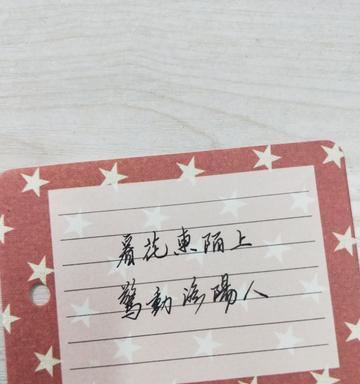 看花東陌上
驚動洛陽人